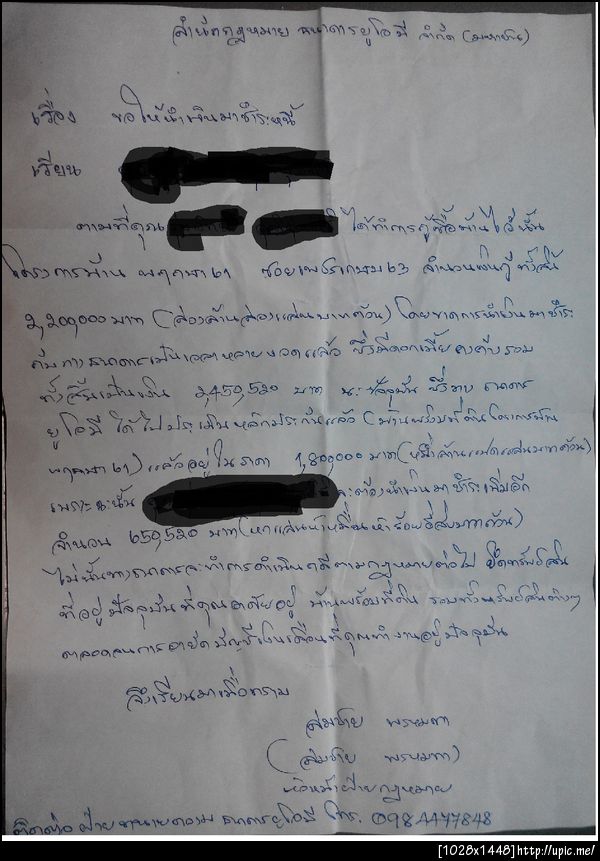 สำนักกฎหมาย ธนาคารยูโอบี จำกัด (มหาชน)
เรื่อง ขอให้นำเงินมาชำระหนี้
เรียน
ตามที่คุณ ได้ทำการกู้ซื้อบ้านไว้นั้น
โครงการบ้าน พฤกษา 61 ซอยเพชรเกษม 63 จำนวนเงินกู้ ทั้งสิ้น
2,200,000 บาท (สองล้านสองแสนบาทถ้วน) โดยขาดการนำเงินมาชำระ
กับทางธนาคารเป็นเวลาหลายงวดแล้ว ซึ่งมีดอกเบี้ยคงค้างรวม
ทั้งสิ้นเป็นเงิน 2,450,520 บาท ณ ปัจจุบัน ซึ่งทาง ธนาคาร
ยูโอบี ได้ไปประเมินหลักประกันแล้ว (บ้านพร้อมที่ดินโครงการบ้าน
พฤกษา 61) แล้วอยู่ในราคา 1,800,000 บาท (หนึ่งล้านแปดแสนบาทถ้วน)
เพราะฉะนั้น จะต้องนำเงินมาชำระเพิ่มอีก
จำนวน 650,520 บาท (หกแสนห้าหมื่นห้าร้อยยี่สิบบาทถ้วน)
ไม่นั้นทางธนาคารจะทำการดำเนินคดีตามกฎหมายต่อไป ยึดทรัพย์สิน
ที่อยู่ปัจจุบันที่คุณอาศัยอยู่ บ้านพร้อมที่ดิน รวมทั้งทรัพย์สินต่างๆ
ตลอดจนการอายัดบัญชีเงินเดือนที่คุณทำงานอยู่ปัจจุบัน
จึงเรียนมาเพื่อทราบ
สมชาย พรหมทา
(สมชาย พรหมทา)
หัวหน้าฝ่ายกฎหมาย
ติดต่อ ฝ่ายทนายความ ธนาคารยูโอบี โทร. 098 4477848
[1028x1448]http://upic.me/